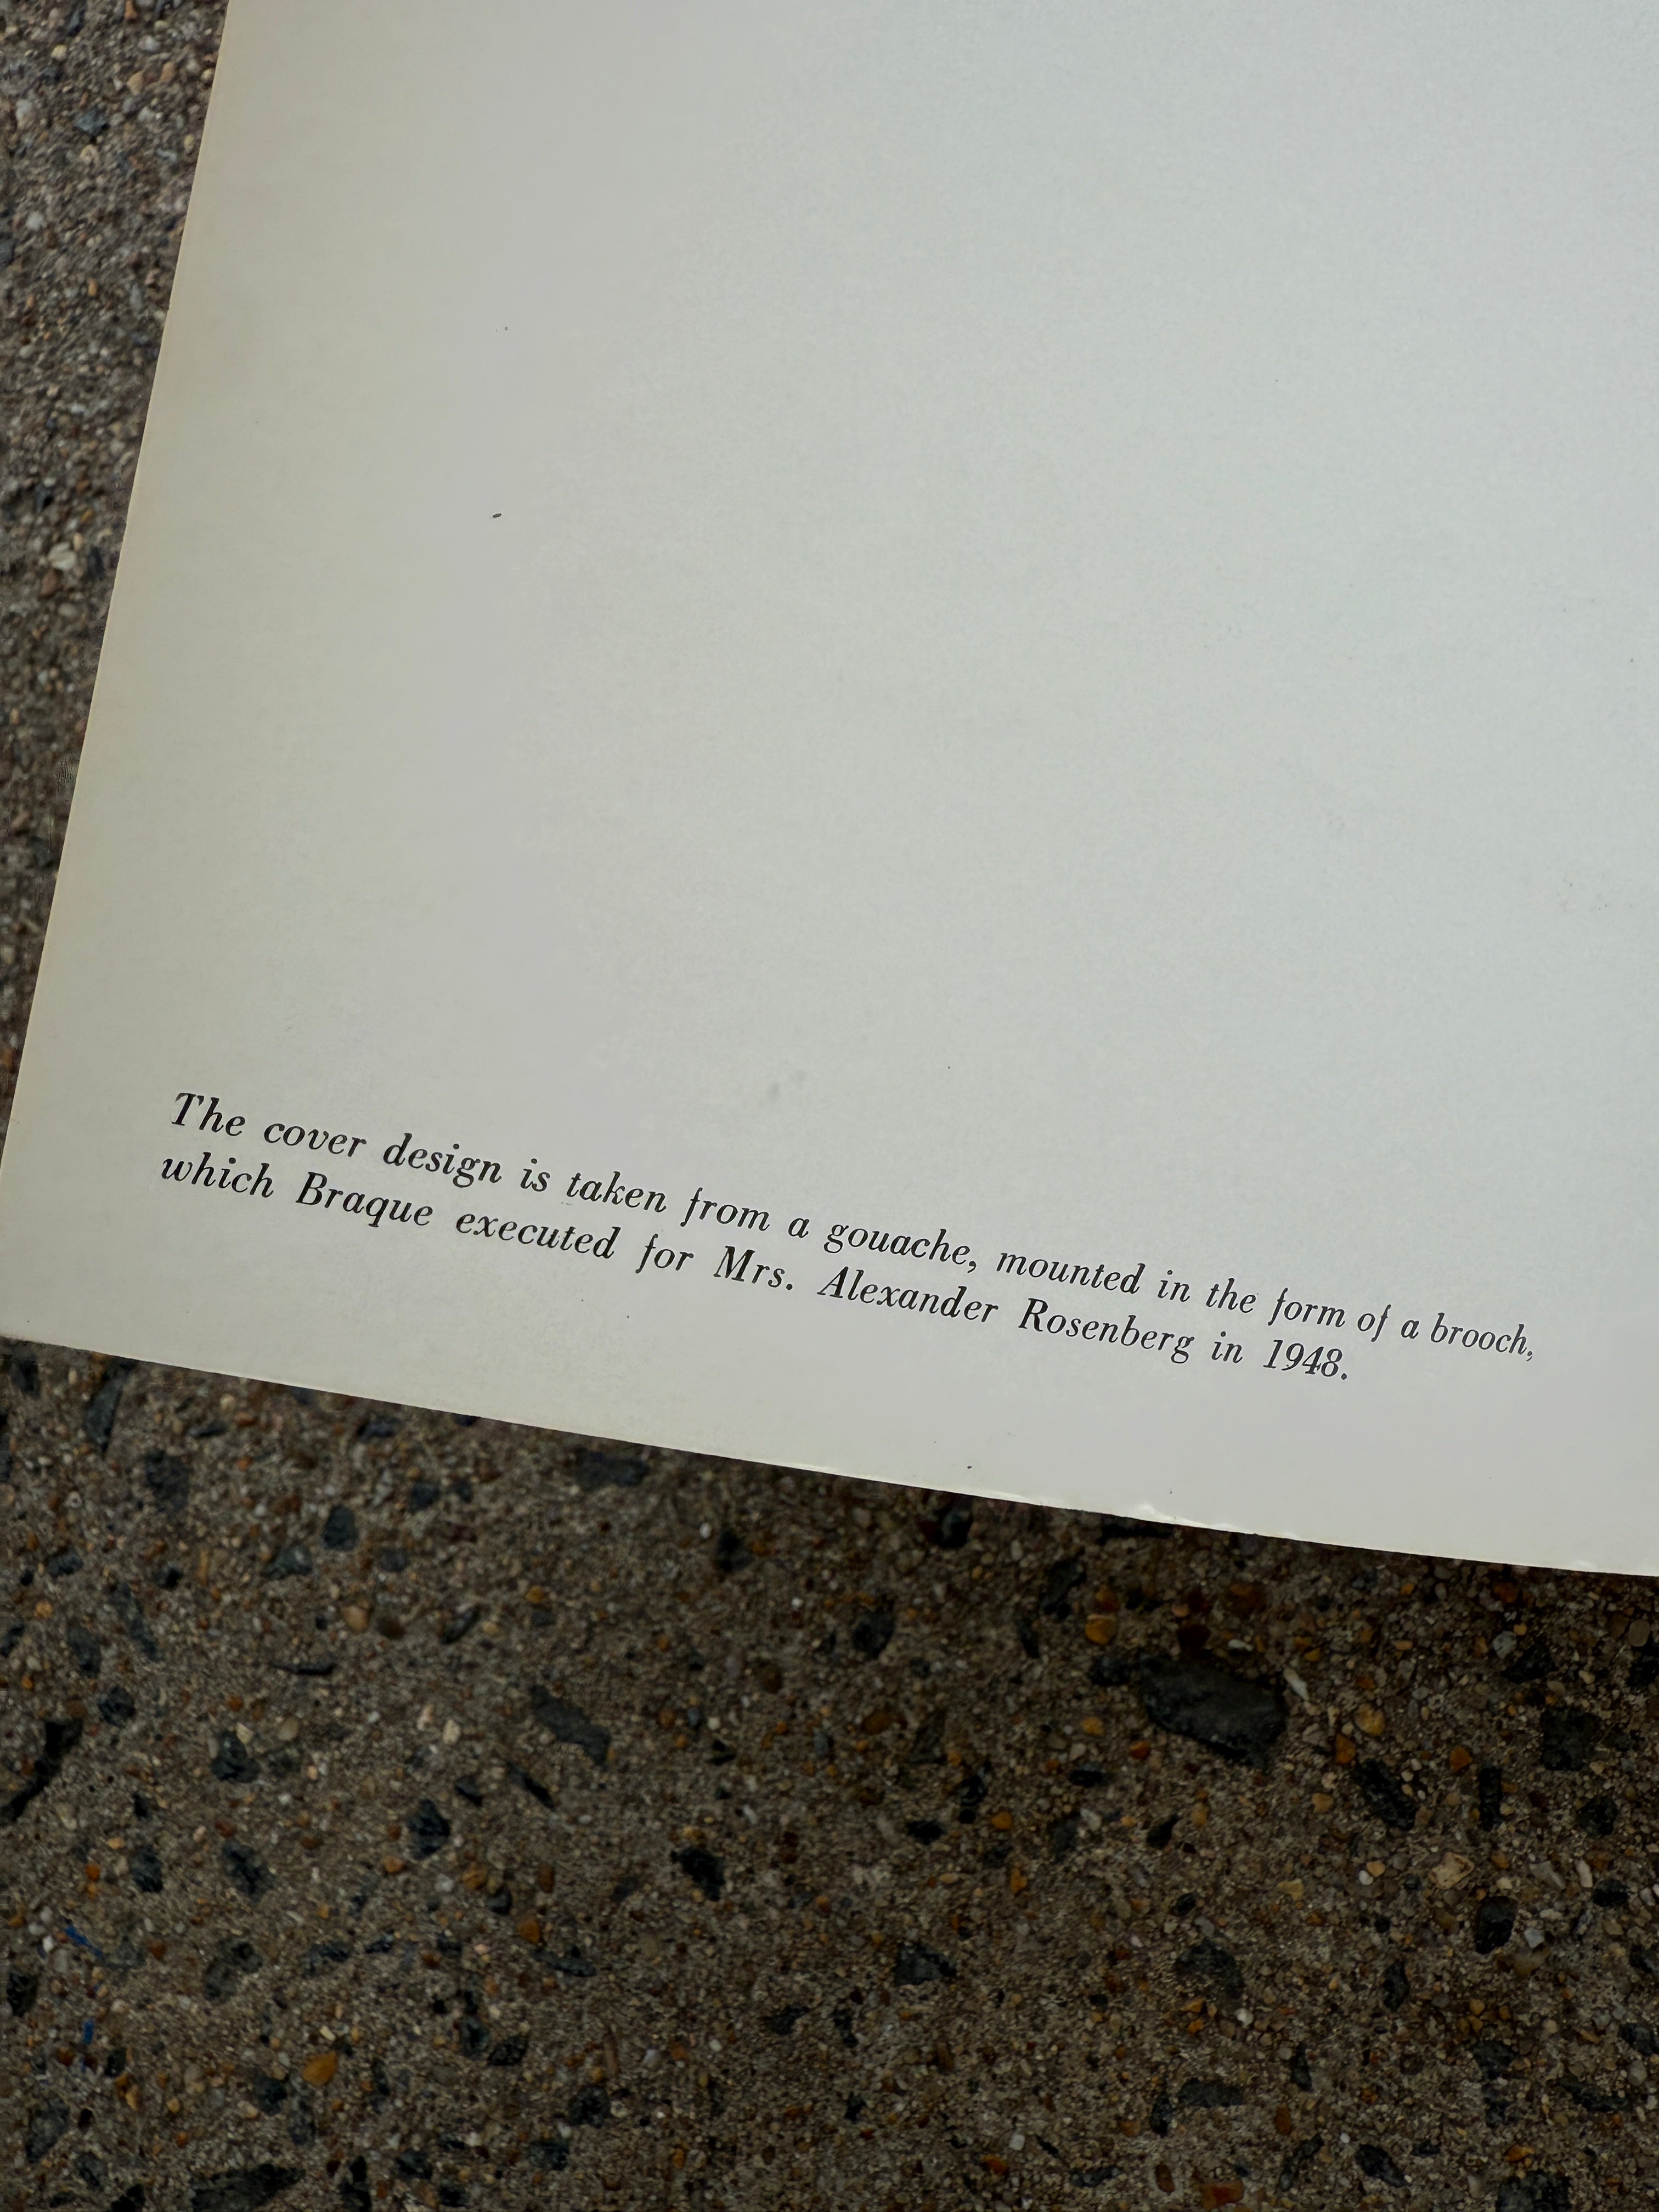 The cover design is taken from a gouache, mounted in the form of a brooch,
which Braque executed for Mrs. Alexander Rosenberg in 1948.